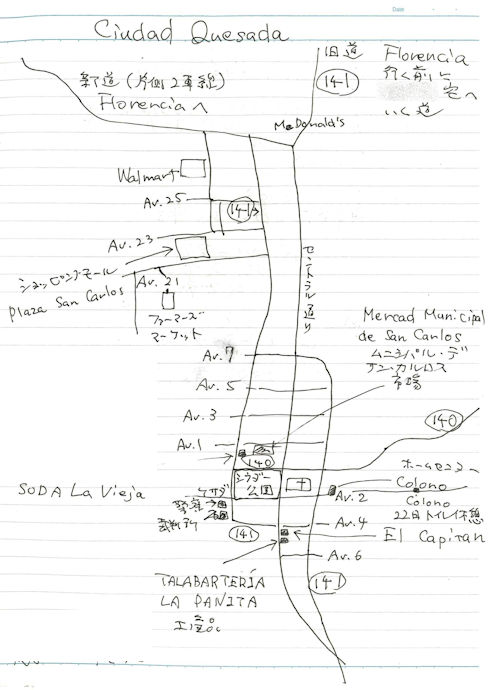 Ciudad Quesada
旧道
141
Florencia
行く前に
宅へ
いく道
新道(片側2車線)
Florenciaへ
McDonald's
Walmart
Av. 25
141
Av. 23
ショッピングモール
Plaza San Carlos
Av. 21
ファーマーズ
マーケット
セントラル通り
Mercad Municipal
de San Carlos
ムニシパル・デ
サン・カルロス
市場
Av. 7
Av. 5
Av. 3
Av. 1
140
140
シウダー
公園
ホームセンター
Colono
Colono
22日トイレ休憩
SODA La Vieja
ケサダ
警察
裁判所
Av. 2
Av. 4
141
El Capitan
Av. 6
141
TALABARTERÍA
LA PANITA
工房